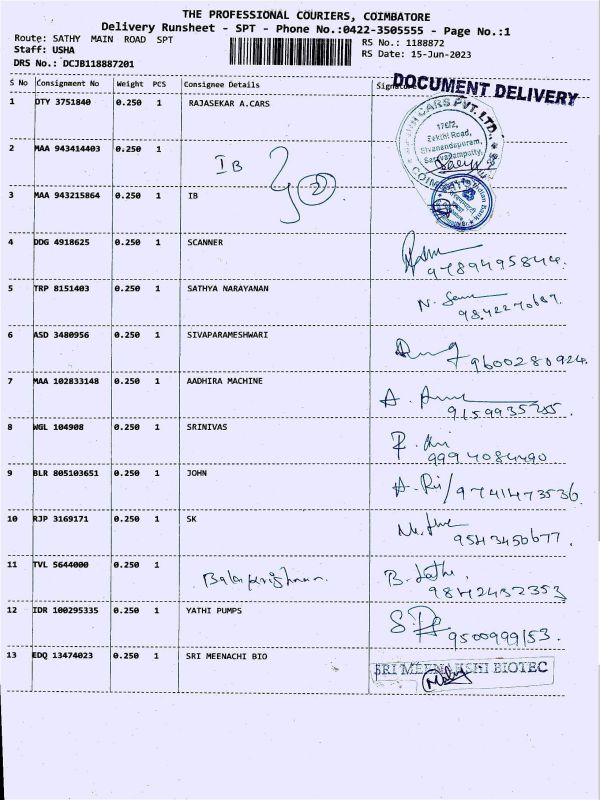 THE PROFESSIONAL COURIERS, COIMBATORE
Delivery Runsheet - SPT - Phone No.:0422-3505555 - Page No.:1
Route: SATHY MAIN ROAD SPT
Staff: USHA
DRS No.: DCJB118887201
RS No.: 1188872
RS Date: 15-Jun-2023
S No Consignment No Weight PCS Consignee Details Signature
DOCUMENT DELIVERY
1 DTY 3751840 0.250 1 RAJASEKAR A.CARS
CARS PVT. LTD.
176/2,
Sakthi Road,
Sivanandapuram,
Saravanampatty,
2 MAA 943414403 0.250 1 IB
2
3 MAA 943215864 0.250 1 IB
Indian Bank
4 DDG 4918625 0.250 1 SCANNER
9789495844.
5 TRP 8151403 0.250 1 SATHYA NARAYANAN
9842270687.
6 ASD 3480956 0.250 1 SIVAPARAMESHWARI
9600280924.
7 MAA 102833148 0.250 1 AADHIRA MACHINE
8 WGL 104908 0.250 1 SRINIVAS
9994084490
9 BLR 805103651 0.250 1 JOHN
9741473536
10 RJP 3169171 0.250 1 SK
9543450677.
11 TVL 5644000 0.250 1 Balakrishnan.
9842482353
12 IDR 100295335 0.250 1 YATHI PUMPS
9500999153.
13 EDQ 13474023 0.250 1 SRI MEENACHI BIO
SRI MEENAKSHI BIOTEC